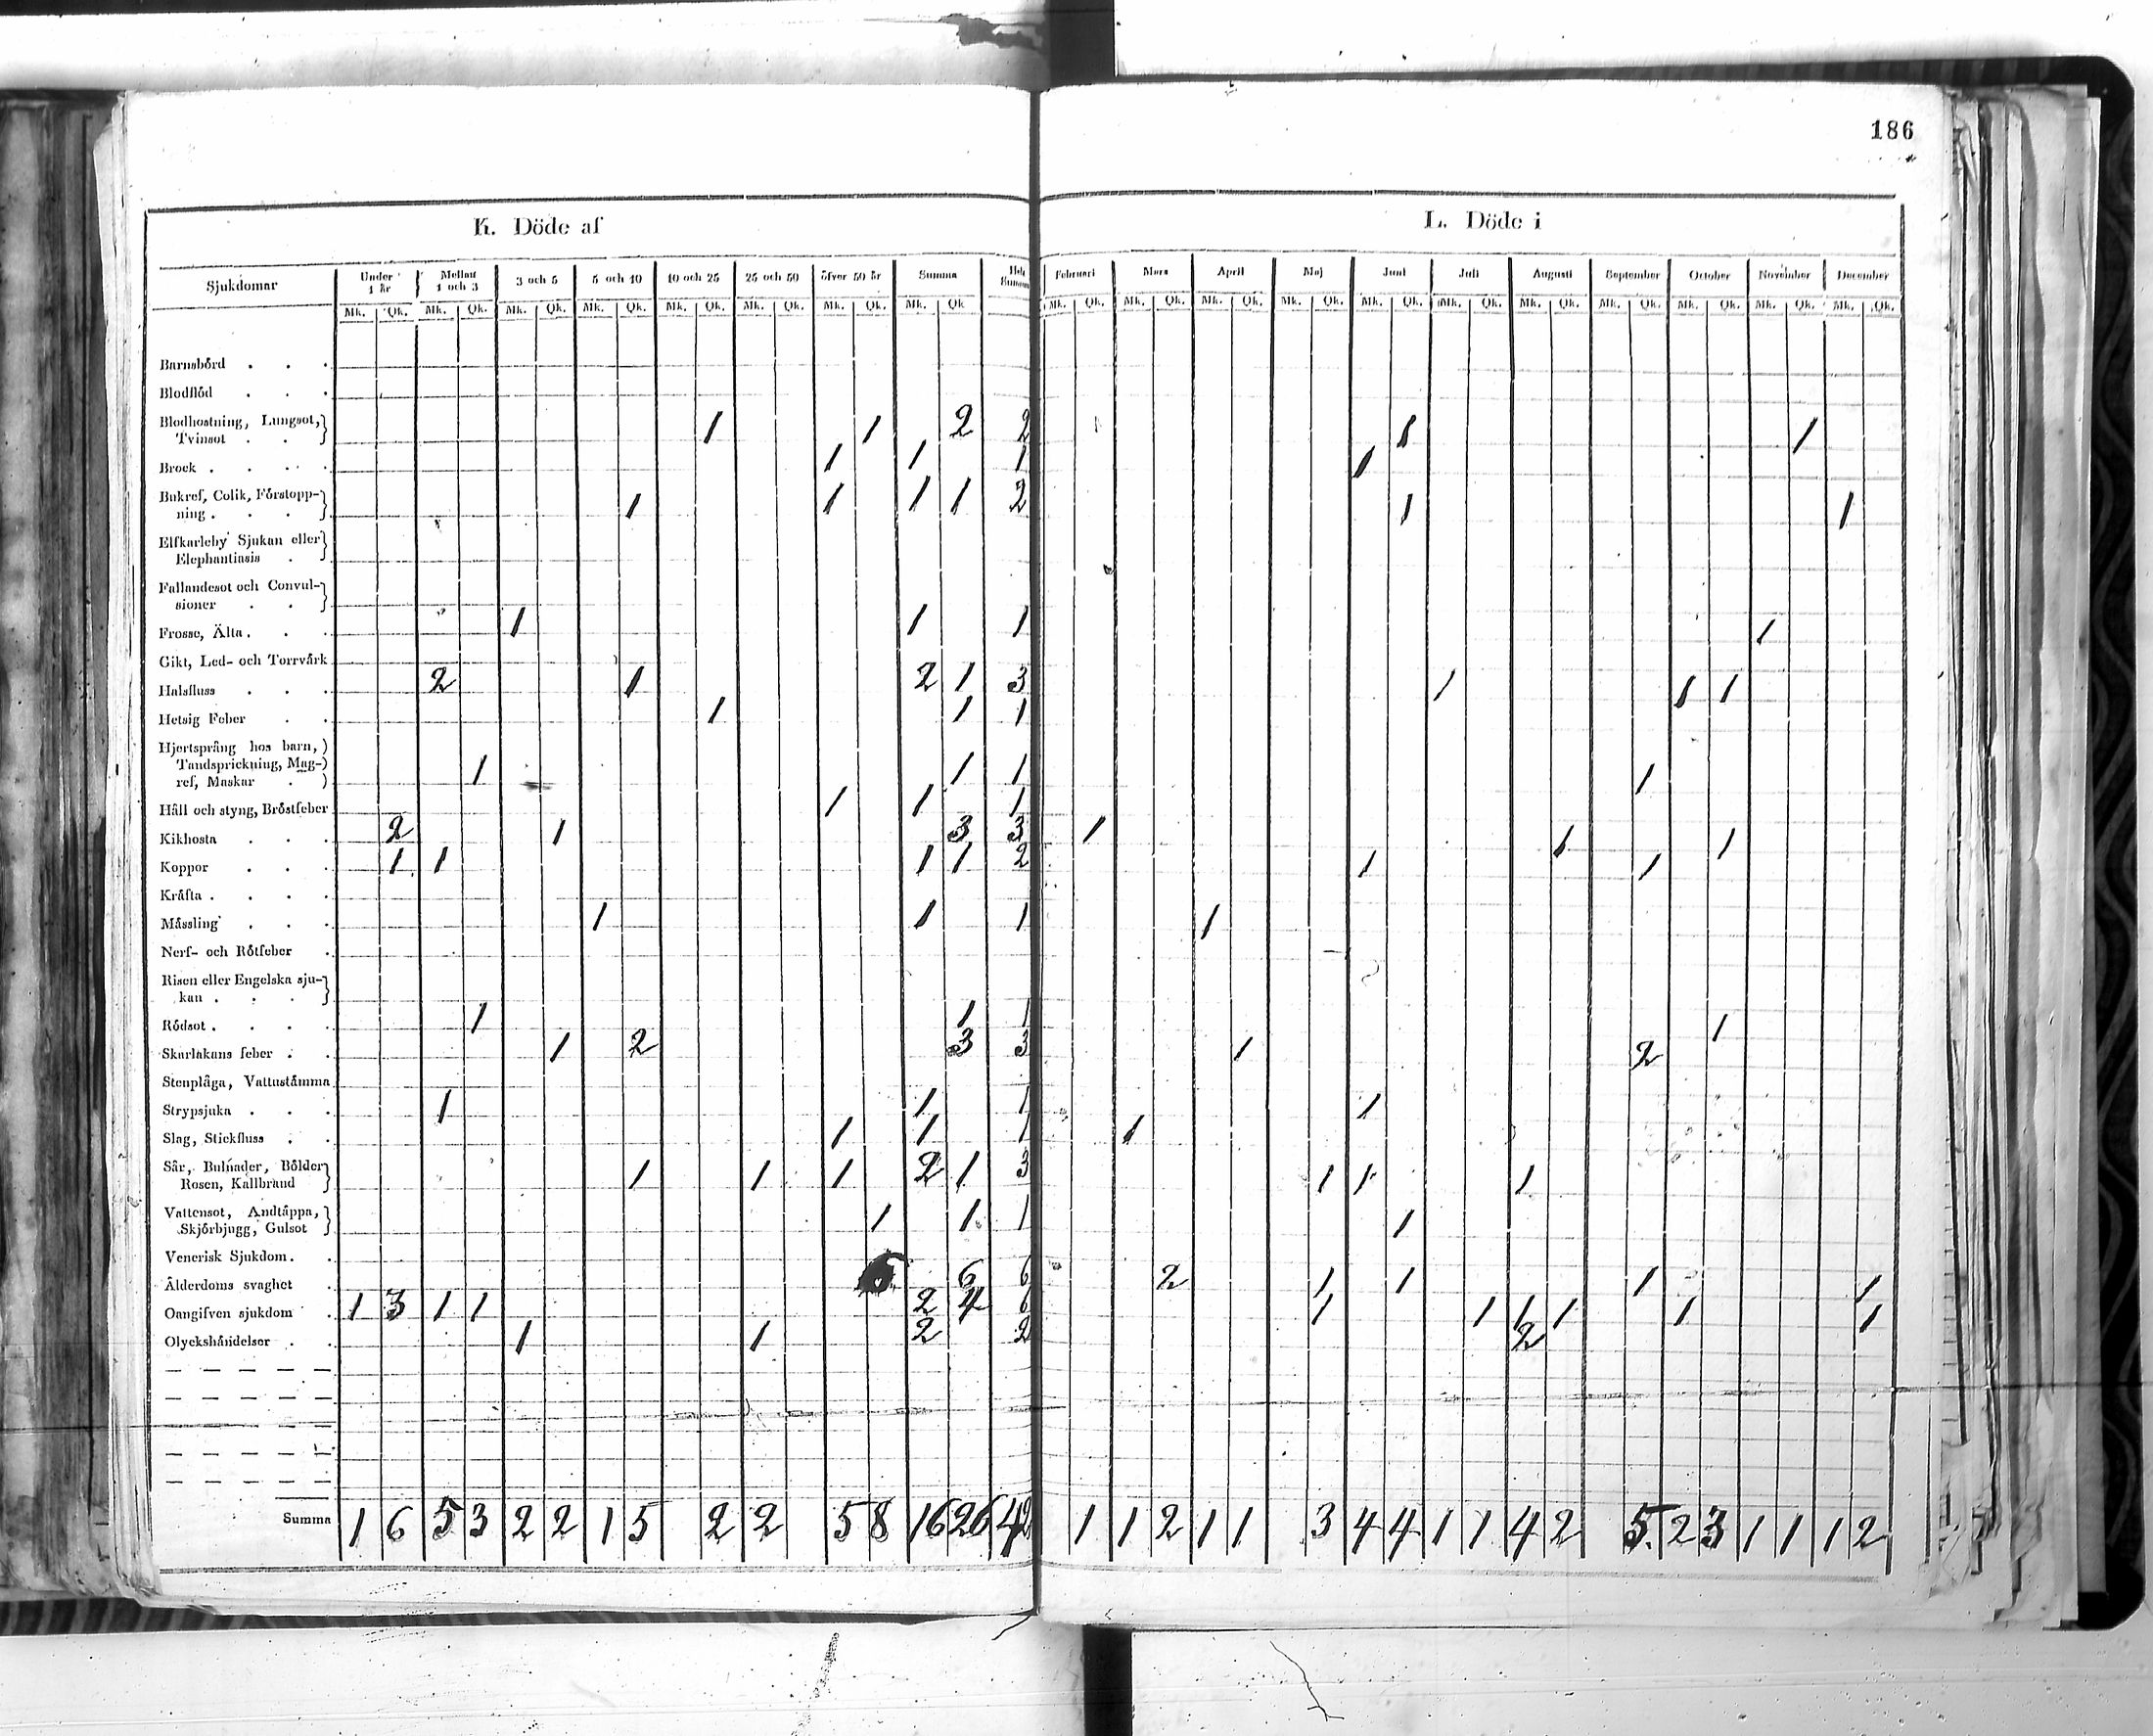 186
K. Döde af
L. Döde i
Sjukdomar Under 1 år Mellan 1 och 3 3 och 5 5 och 10 10 och 25 25 och 50 öfver 50 år Summa Hela Summan Februari Mars April Maj Juni Juli Augusti September October November December
Mk. Qk. Mk. Qk. Mk. Qk. Mk. Qk. Mk. Qk. Mk. Qk. Mk. Qk. Mk. Qk Mk. Qk. Mk. Qk. Mk. Qk. Mk. Qk. Mk. Qk. Mk. Qk. Mk. Qk. Mk. Qk. Mk. Qk. Mk. Qk. Mk. Qk.
Barnsbörd . . .
Blodflöd . . .
Blodhostning, Lungsot,
Tvinsot . . 1 1 2 2 1 1
Brock . . . . 1 1 1 1
Bukref, Colik, Förstopp-
ning . . . 1 1 1 1 2 1 1
Elfkarleby Sjukan eller
Elephantiasis .
Fallandesot och Convul-
sioner . .
Frosse, Älta . . . 1 1 1 1
Gikt, Led- och Torrvärk
Halsfluss . . . 2 1 2 1 3 1 1 1
Hetsig Feber . . 1 1 1
Hjertsprång hos barn,
Tandsprickning, Mag-
ref, Maskar . 1 1 1 1
Håll och styng, Bröstfeber 1 1 1
Kikhosta . . . 2 1 3 3 1 1 1
Koppor . . . 1 1 1 1 2 1 1
Kräfta . . . .
Mässling . . . 1 1 1 1
Nerf- och Rötfeber .
Risen eller Engelska sju-
kan . . .
Rödsot . . . . 1 1 1 1
Skarlakans feber . . 1 2 3 3 1 2
Stenplåga, Vattustämma
Strypsjuka . . . 1 1 1 1
Slag, Stickfluss . . 1 1 1 1
Sår, Bulnader, Bölder
Rosen, Kallbrand 1 1 1 2 1 3 1 1 1
Vattensot, Andtäppa,
Skjörbjugg, Gulsot 1 1 1 1
Venerisk Sjukdom . .
Ålderdoms svaghet . 6 6 6 2 1 1 1 1
Oangifven sjukdom . 1 3 1 1 2 4 6 1 1 1 1 1 1
Olyckshändelser . . 1 1 2 2 2
Summa 1 6 5 3 2 2 1 5 2 2 5 8 16 26 42 1 1 2 1 1 3 4 4 1 1 4 2 5. 2 3 1 1 1 2